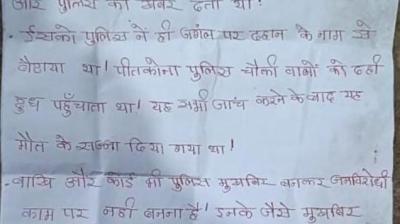 और पुलिस को खबर देता था!
- ईसको पुलिस ने ही जगंल पर दहान के नाम से
बैठाया था! पीतकोना पुलिस चौकी वालों को दही
दुध पहुँचाता था! यह सभी जांच करने के बाद यह
मौत के सज्जा दिया गया था!
- बाकि और कोई भी पुलिस मुखबिर बनकर जनविरोधी
काम पर नही बनना है! इनके जैसे मुखबिर